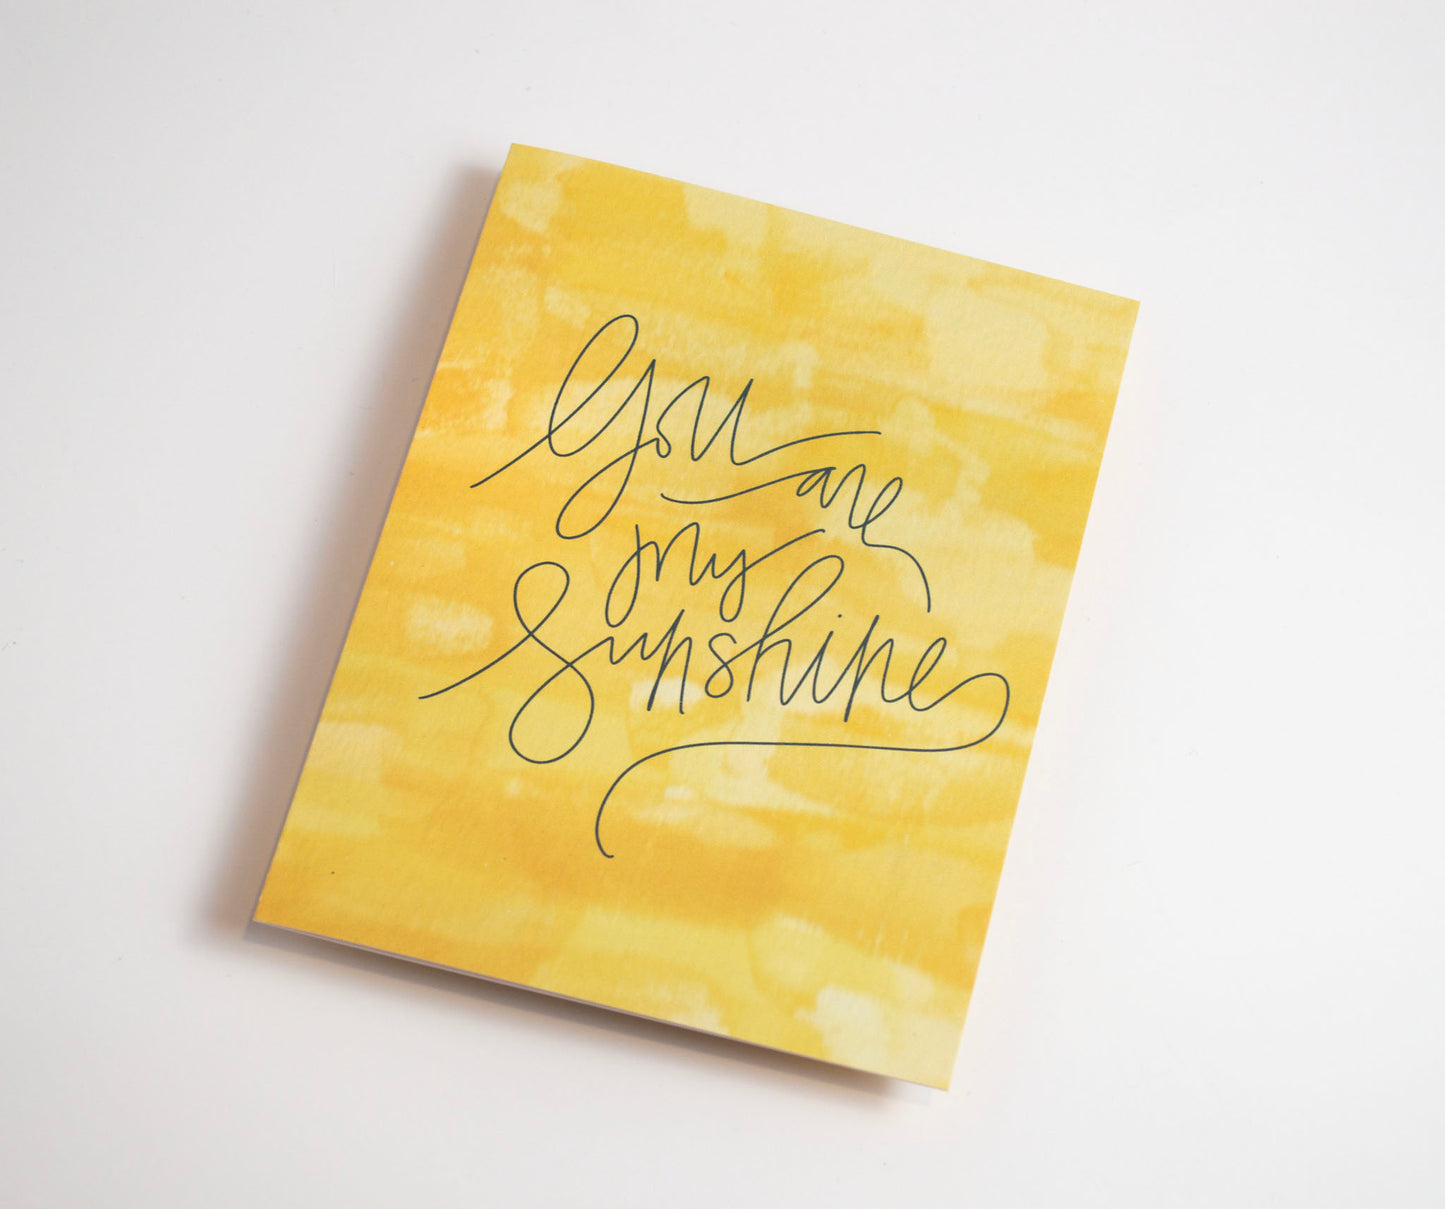 You
are
my
Sunshine